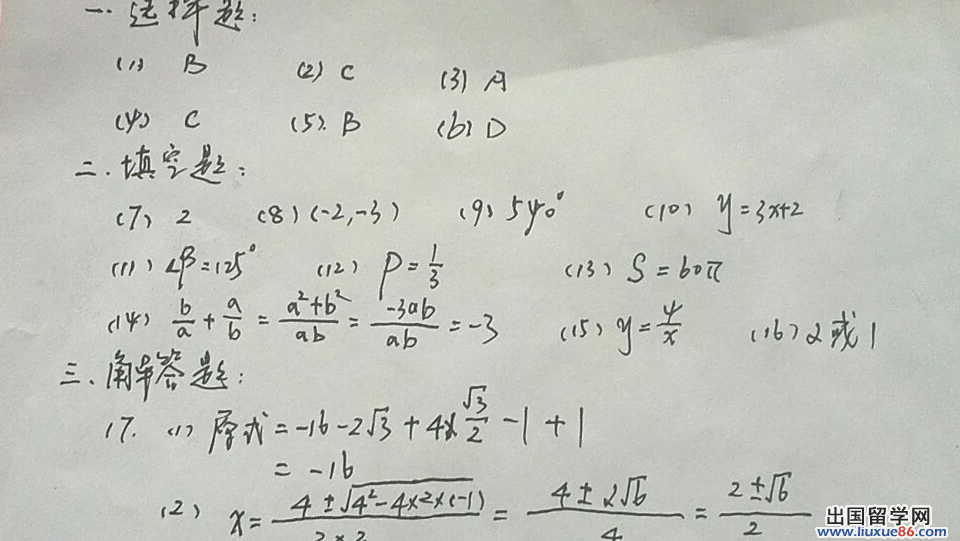 一.选择题:
(1) B (2) C (3) A
(4) C (5). B (6) D
二.填空题:
(7) 2 (8) (-2,-3) (9) 540° (10) y=3x+2
(11) ∠β=125° (12) P=1/3 (13) S=60π
(14) b/a + a/b = (a²+b²)/ab = -3ab/ab = -3 (15) y=4/x (16) 2或1
三.解答题:
17. (1) 原式=-16-2√3+4×√3/2-1+1
= -16
(2) x= (4±√(4²-4×2×(-1)))/(2×2) = (4±2√6)/4 = (2±√6)/2
出国留学网
www.liuxue86.com